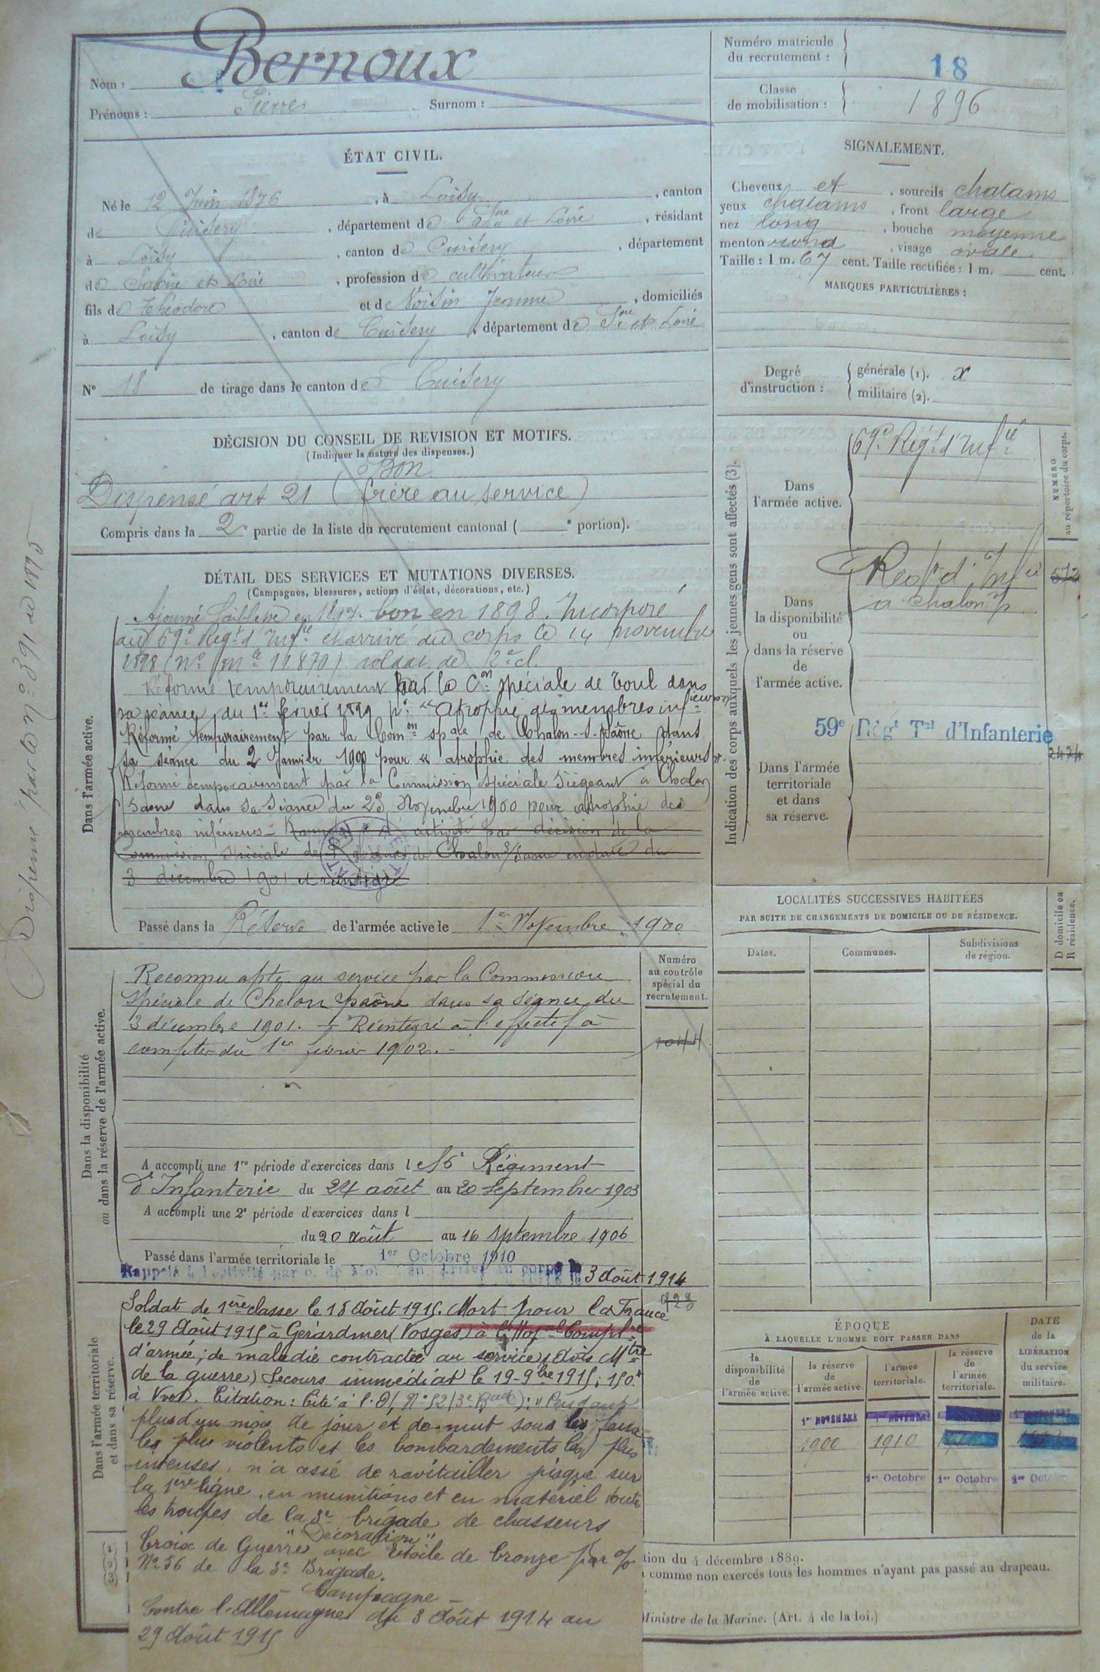 Nom : Bernoux
Prénoms : Pierre Surnom :
Numéro matricule du recrutement : 18
Classe de mobilisation : 1896
ÉTAT CIVIL.
Né le 12 Juin 1876, à Loisy, canton
de Cuisery, département de Saône et Loire, résidant
à Loisy, canton de Cuisery, département
de Saône et Loire, profession de cultivateur
fils de Théodore et de Voisin Jeanne, domiciliés
à Loisy, canton de Cuisery, département de Sne et Loire
N° 18 de tirage dans le canton de Cuisery
SIGNALEMENT.
Cheveux et, sourcils chatains
yeux chatains, front large
nez long, bouche moyenne
menton rond, visage ovale
Taille : 1 m. 67 cent. Taille rectifiée : 1 m. cent.
MARQUES PARTICULIÈRES :
Degré d'instruction : générale (1). x
militaire (2).
DÉCISION DU CONSEIL DE REVISION ET MOTIFS.
(Indiquer la nature des dispenses.)
Bon
Dispensé art 21 (frère au service)
Compris dans la 2 partie de la liste du recrutement cantonal ( e portion).
DÉTAIL DES SERVICES ET MUTATIONS DIVERSES.
(Campagnes, blessures, actions d'éclat, décorations, etc.)
Dans l'armée active.
Ajourné faiblesse en 1897. bon en 1898. Incorporé
au 69e Régt d'Infie et arrivé au corps le 14 novembre
1898 (No Mle 11870) soldat de 2e cl.
Réformé temporairement par la Con spéciale de Toul dans
sa séance du 1er février 1899 pr "atrophie des membres inférieurs"
Réformé temporairement par la Comon spale de Chalon-s-Saône dans
sa séance du 2 Janvier 1900 pour "atrophie des membres inférieurs".
Réformé temporairement par la Commission Spéciale Siégeant à Chalon
s/Saône dans sa Séance du 23 Novembre 1900 pour atrophie des
membres inférieurs
3 décembre 1901
Passé dans la Réserve de l'armée active le 1er Novembre 1900
Dispensé
Dans la disponibilité ou dans la réserve de l'armée active.
Reconnu apte au service par la Commission
Spéciale de Chalon s/Saône dans sa séance du
3 décembre 1901. Réintégré à l'effectif à
compter du 1er février 1902.
Numéro au contrôle spécial du recrutement.
A accompli une 1re période d'exercices dans l Régiment
d'Infanterie du 24 août au 20 Septembre 1903
A accompli une 2e période d'exercices dans l
du 20 Août au 16 septembre 1906
Passé dans l'armée territoriale le 1er Octobre 1910
3 Août 1914
Dans l'armée territoriale et dans sa réserve.
Soldat de 1ère classe le 18 Août 1915. Mort pour la France
le 29 Août 1915 à Gérardmer (Vosges) à
d'armée, de maladie contractée au service, (Avis Mtre
de la guerre) Secours immédiat le 19-9bre 1915, 150f
à Citation : Cité à l'O/ No 52 (3e Bde) : "Pendant
plus d'un mois de jour et de nuit sous les feux
les plus violents et les bombardements les plus
intenses, n'a cessé de ravitailler jusque sur
la 1ère ligne, en munitions et en matériel toutes
les troupes de la 3e brigade de chasseurs
Décoration
Croix de Guerre avec Etoile de bronze par o/
No 56 de la 3e Brigade.
Campagne
Contre l'Allemagne du 3 Août 1914 au
29 Août 1915
Indication des corps auxquels les jeunes gens sont affectés (3).
NUMÉRO au répertoire du corps.
Dans l'armée active.
69e Régt d'Infie
Dans la disponibilité ou dans la réserve de l'armée active.
Regt d'Infie
à Chalon s/s
59e Régt Tal d'Infanterie
Dans l'armée territoriale et dans sa réserve.
LOCALITÉS SUCCESSIVES HABITÉES
PAR SUITE DE CHANGEMENTS DE DOMICILE OU DE RÉSIDENCE.
D domicile ou R résidence.
Dates. Communes. Subdivisions de région.
ÉPOQUE
À LAQUELLE L'HOMME DOIT PASSER DANS
DATE de la LIBÉRATION du service militaire.
la disponibilité de l'armée active.
la réserve de l'armée active.
l'armée territoriale.
la réserve de l'armée territoriale.
1er NOVEMBRE 1er NOVEMBRE
1900 1910
1er Octobre 1er Octobre 1er Octobre
tion du 4 décembre 1889.
comme non exercés tous les hommes n'ayant pas passé au drapeau.
Ministre de la Marine. (Art. 4 de la loi.)